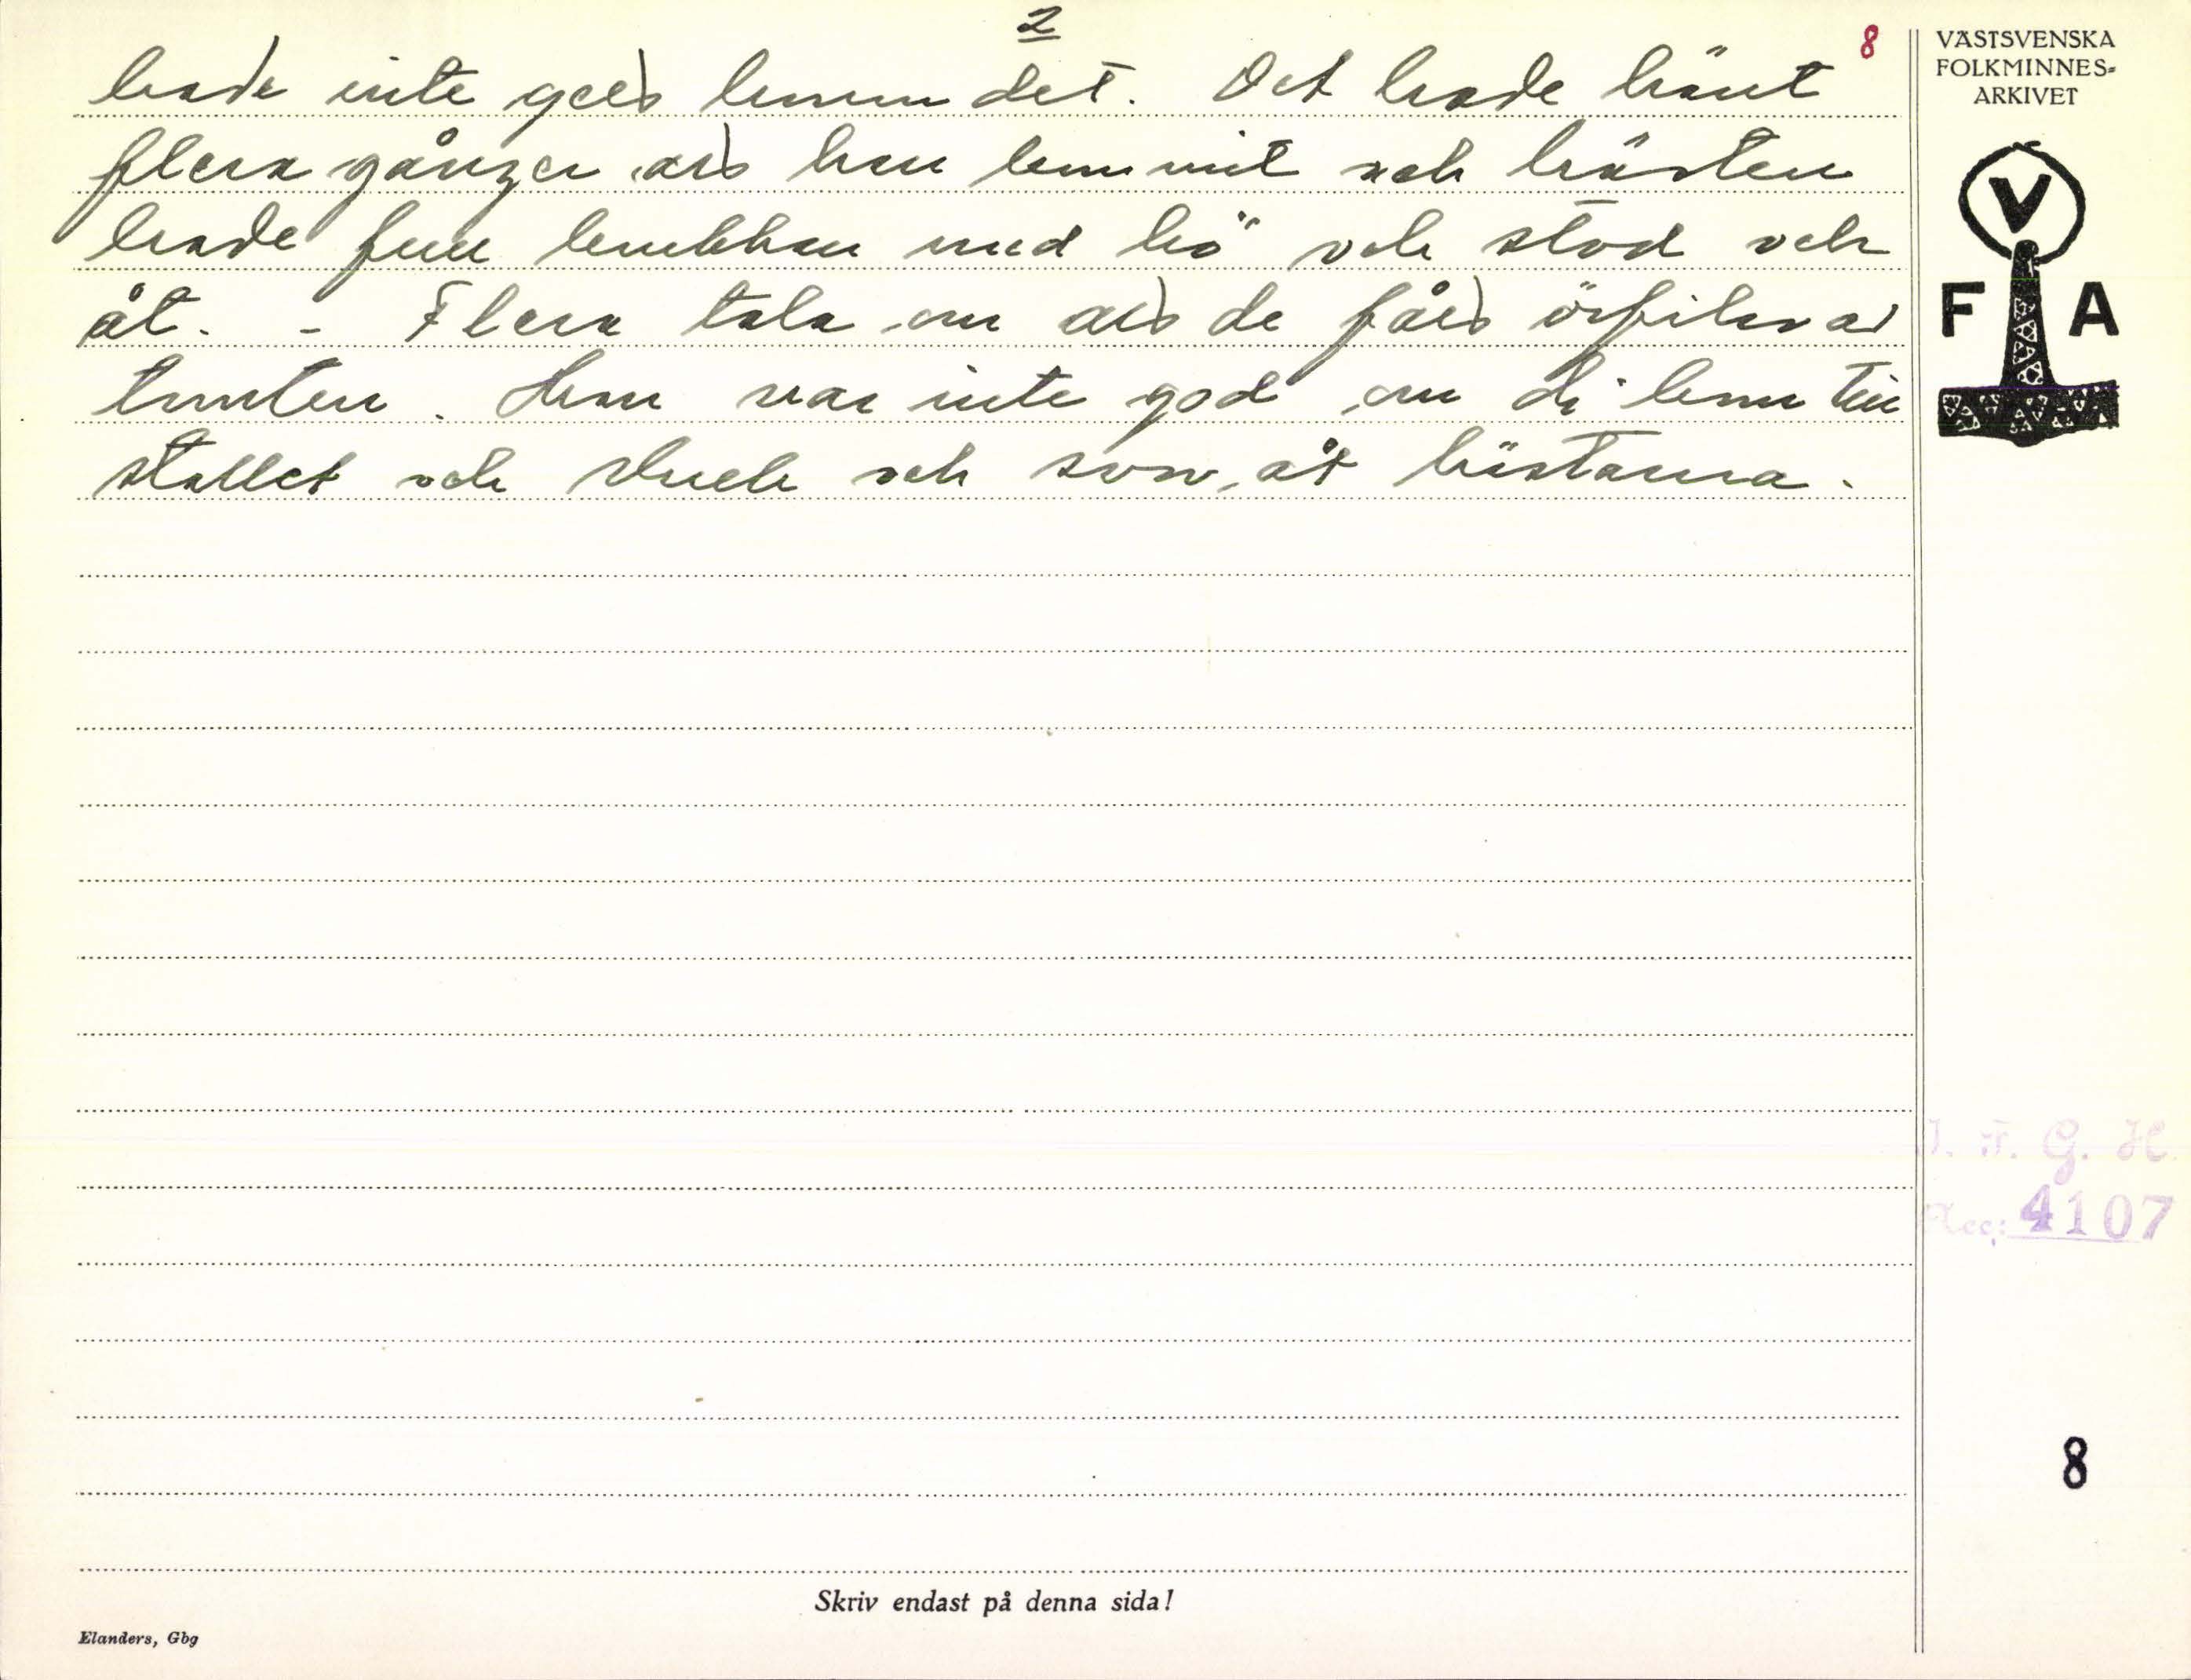 2
8
hade inte gett honom det. Det hade hänt
flera gånger att han kommit och hästen
hade full krubban med hö och stod och
åt. - Flera tala om att de fått örfilar av
tomten. Han var inte god om di kom till
stallet och skrek och svor åt hästarna.
VÄSTSVENSKA
FOLKMINNES-
ARKIVET
V
F A
I. F. G. H.
Acc: 4107
8
Skriv endast på denna sida!
Elanders, Gbg